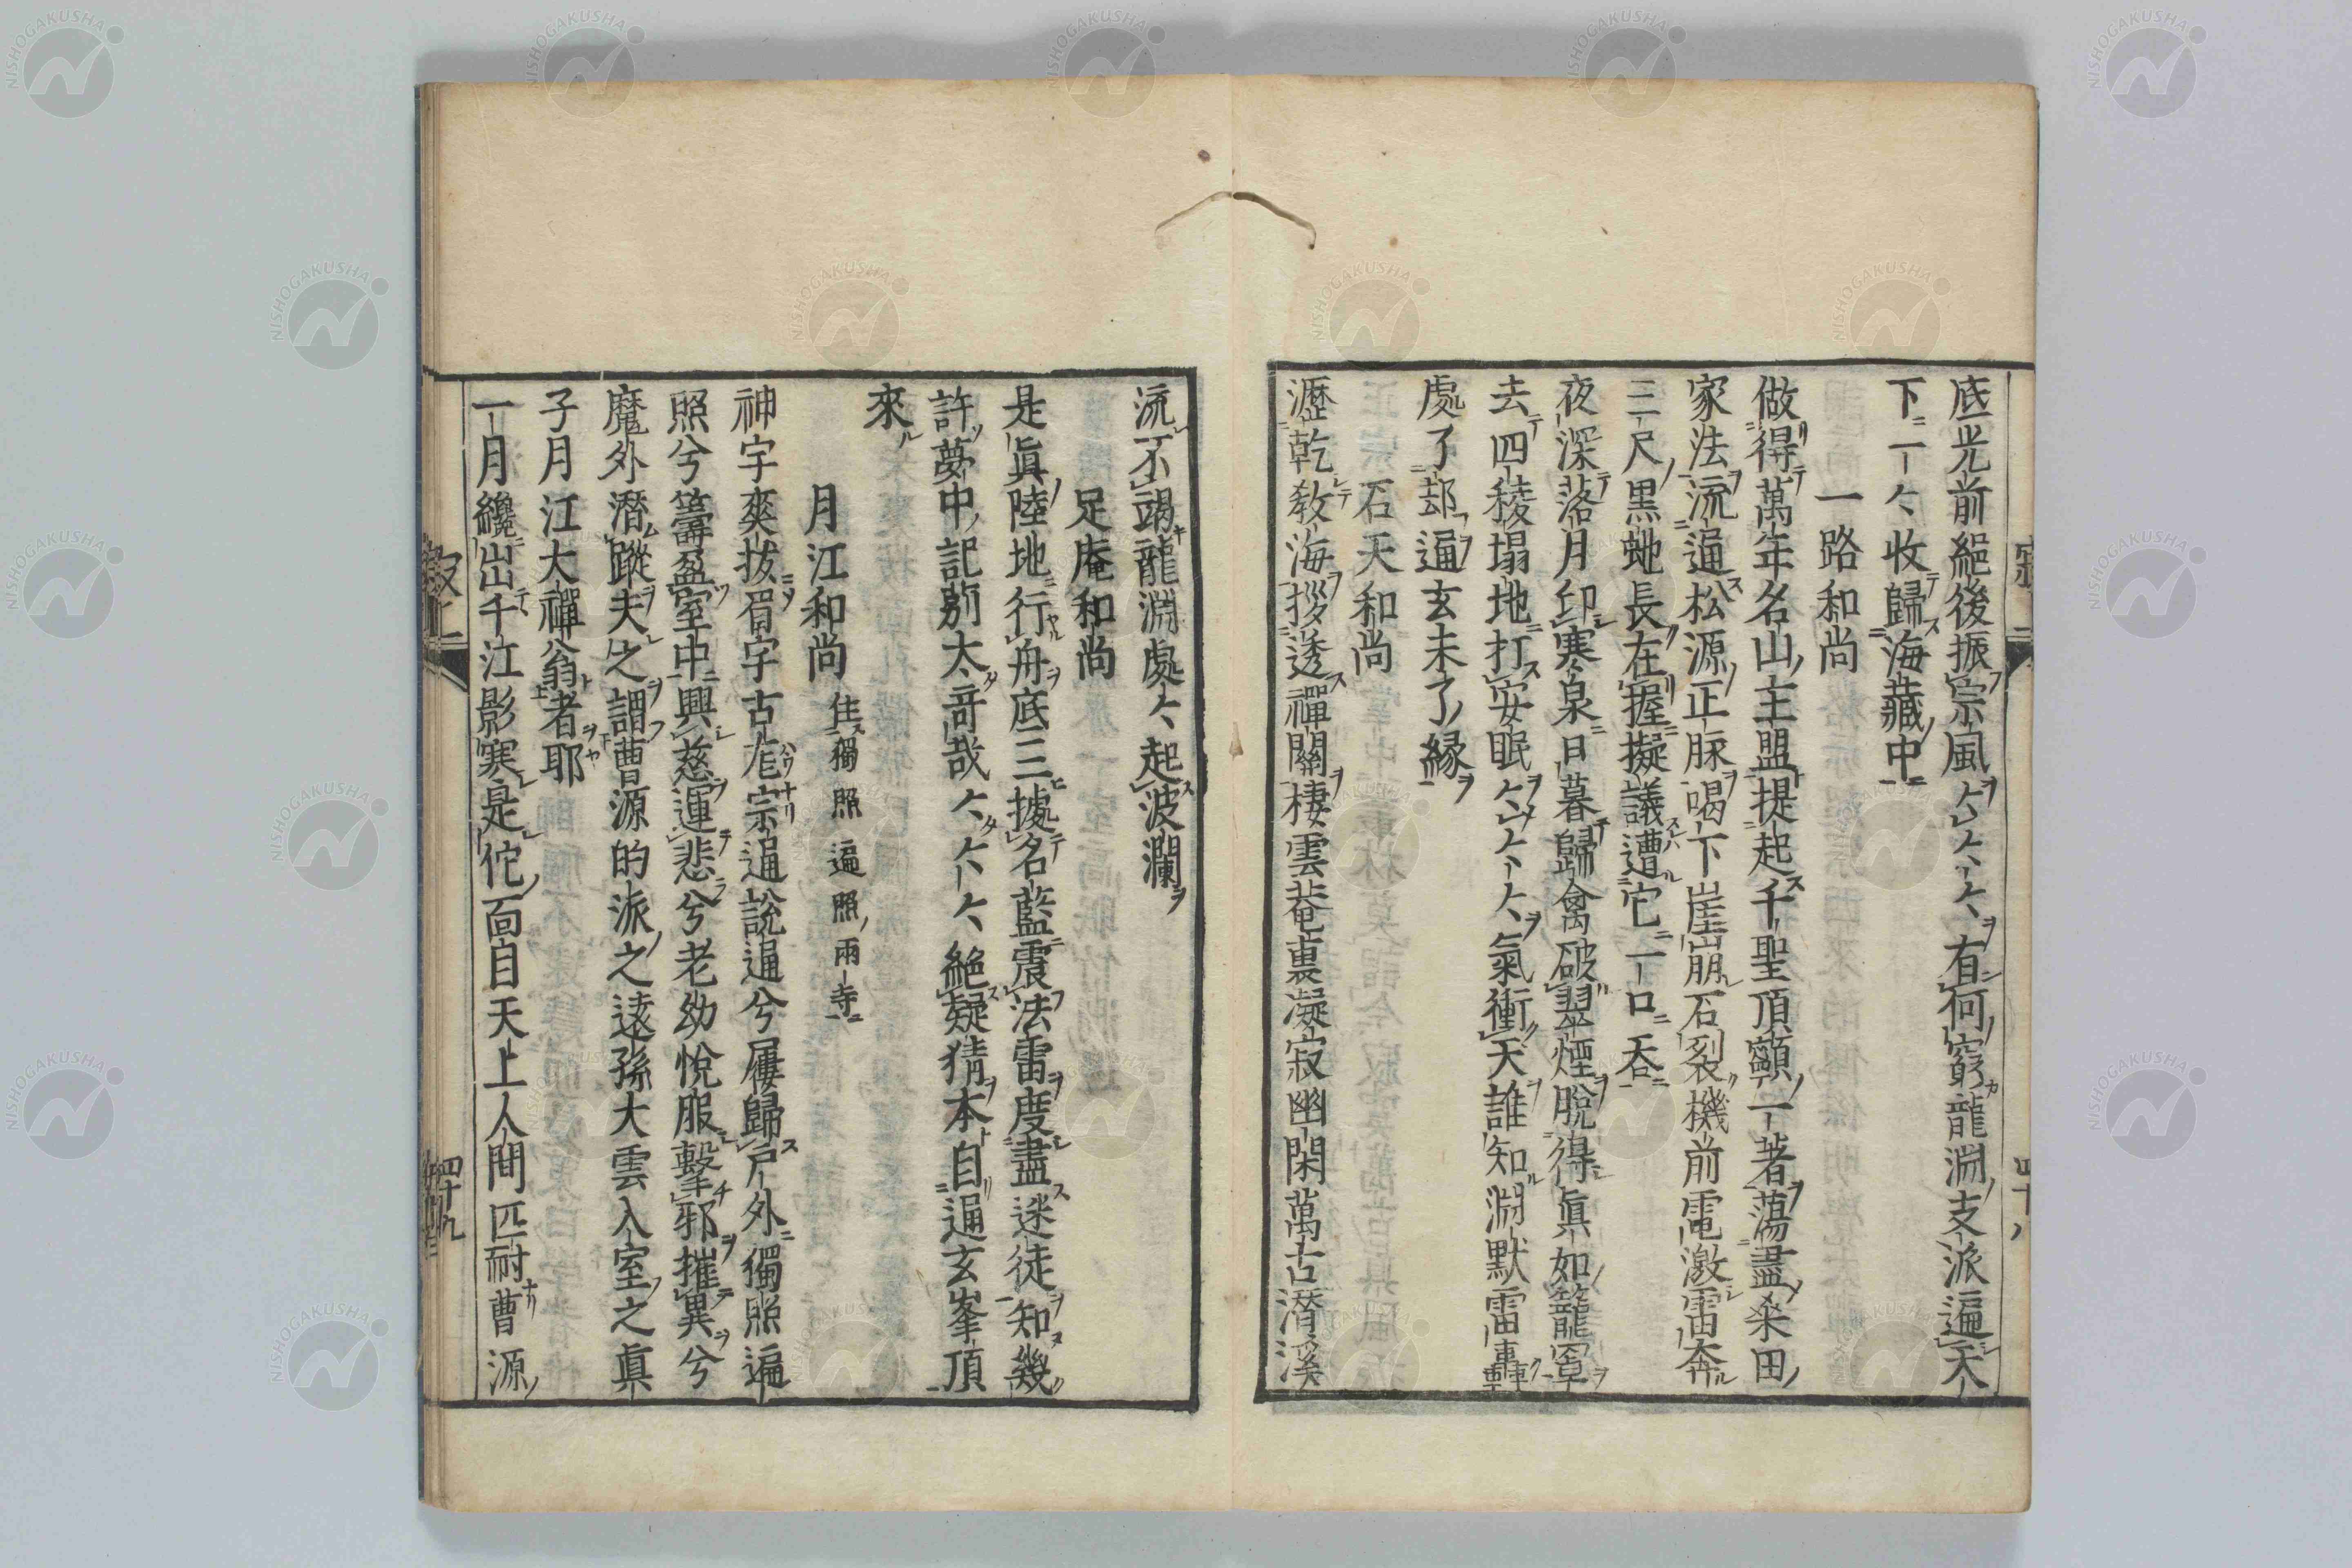 底光前絕後振宗風〻〻〻有何窮龍淵支派遍天
下一〻收歸海藏中
一路和尚
做得萬年名山主盟提起千聖頂𩕳一著蕩盡柒田
家法流通松源正脉喝下崖崩石裂機前電激雷奔
三尺黑虵長在握擬議遭它一口吞
夜深落月印寒泉日暮歸禽破翠煙脫得眞如籠罩
去四稜塌地打安眠〻〻〻氣衝天誰知淵默雷轟
處了却逼玄未了緣
石天和尚
瀝乾教海拶透禪關棲雲菴裏凝寂幽閑萬古潛溪
流不竭龍淵處〻起波瀾
足庵和尚
是眞陸地行舟底三據名藍震法雷度盡迷徒知幾
許夢中記莂太奇哉〻〻〻絕疑猜本自逼玄峯頂
來
月江和尚 住獨照遍照兩寺
神宇爽拔眉宇古厖宗通說通兮屨歸戶外獨照遍
照兮籌盈室中興慈運悲兮老幼悅服擊邪摧異兮
魔外潛蹤夫之謂曹源的派之遠孫大雲入室之眞
子月江大禪翁者耶
一月纔出千江影寒是佗面目天上人間匹耐曹源
四十八
四十九
NISHOGAKUSHA